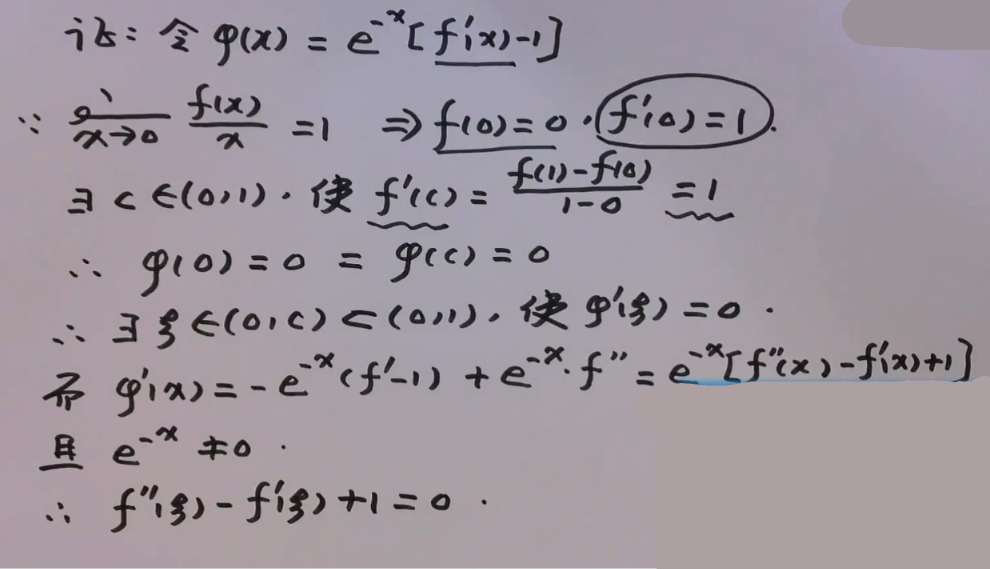 证: 令 φ(x) = e^{-x}[f'(x)-1]
∵ lim_{x→0} f(x)/x = 1 ⇒ f(0)=0. f'(0)=1.
∃ c ∈(0,1). 使 f'(c) = (f(1)-f(0))/(1-0) = 1
∴ φ(0) = 0 = φ(c) = 0
∴ ∃ ξ ∈(0,c)⊂(0,1). 使 φ'(ξ) = 0.
而 φ'(x) = -e^{-x}(f'-1) + e^{-x}·f'' = e^{-x}[f''(x)-f'(x)+1]
且 e^{-x} ≠ 0.
∴ f''(ξ) - f'(ξ) + 1 = 0.